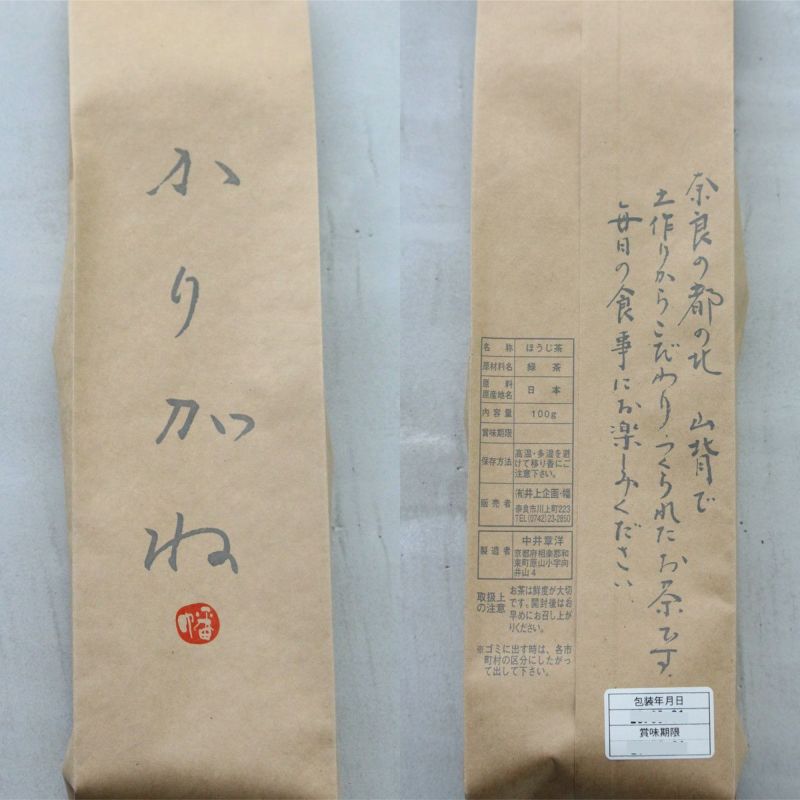 かりがね
幡
奈良の都の北 山背で
土作りからこだわりつくられたお茶です。
毎日の食事にお楽しみください。
名称 ほうじ茶
原材料名 緑茶
原料原産地名 日本
内容量 100g
賞味期限
保存方法 高温・多湿を避
けて移り香にご
注意下さい。
販売者 (有)井上企画・幡
奈良市川上町223
TEL(0742)23-2850
製造者 中井章洋
京都府相楽郡和
束町原山小字向
井山4
取扱上の注意 お茶は鮮度が大切
です。開封後はお
早めにお召し上が
りください。
※ゴミに出す時は、各市
町村の区分にしたがっ
て出して下さい。
包装年月日
賞味期限